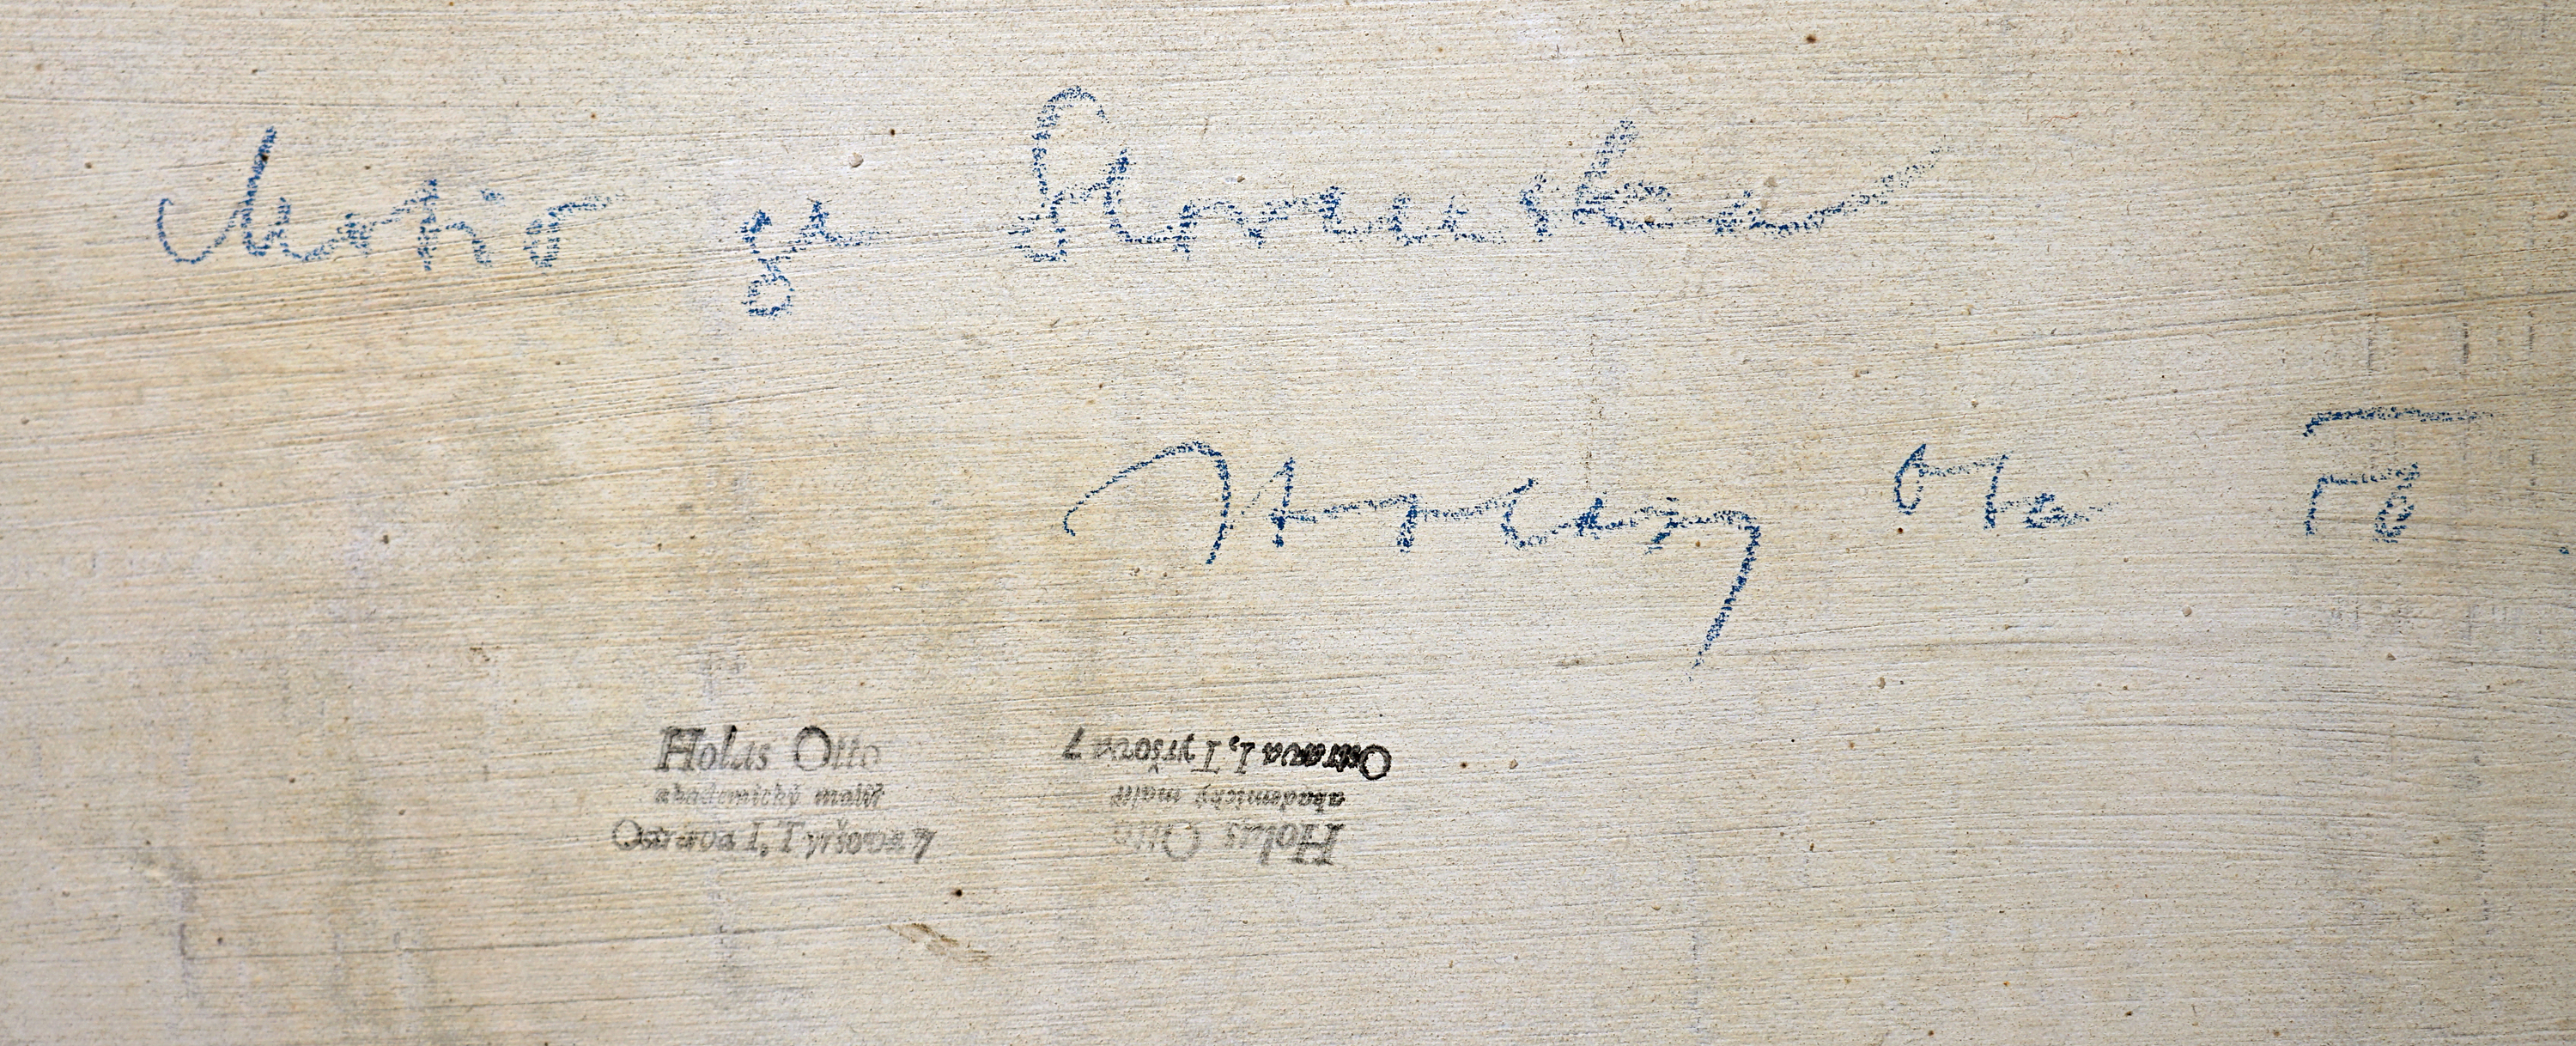 Motiv ze Slovenska
Ota
Holas Otto
akademický malíř
Ostrava I, Tyršova 7
Holas Otto
akademický malíř
Ostrava I, Tyršova 7